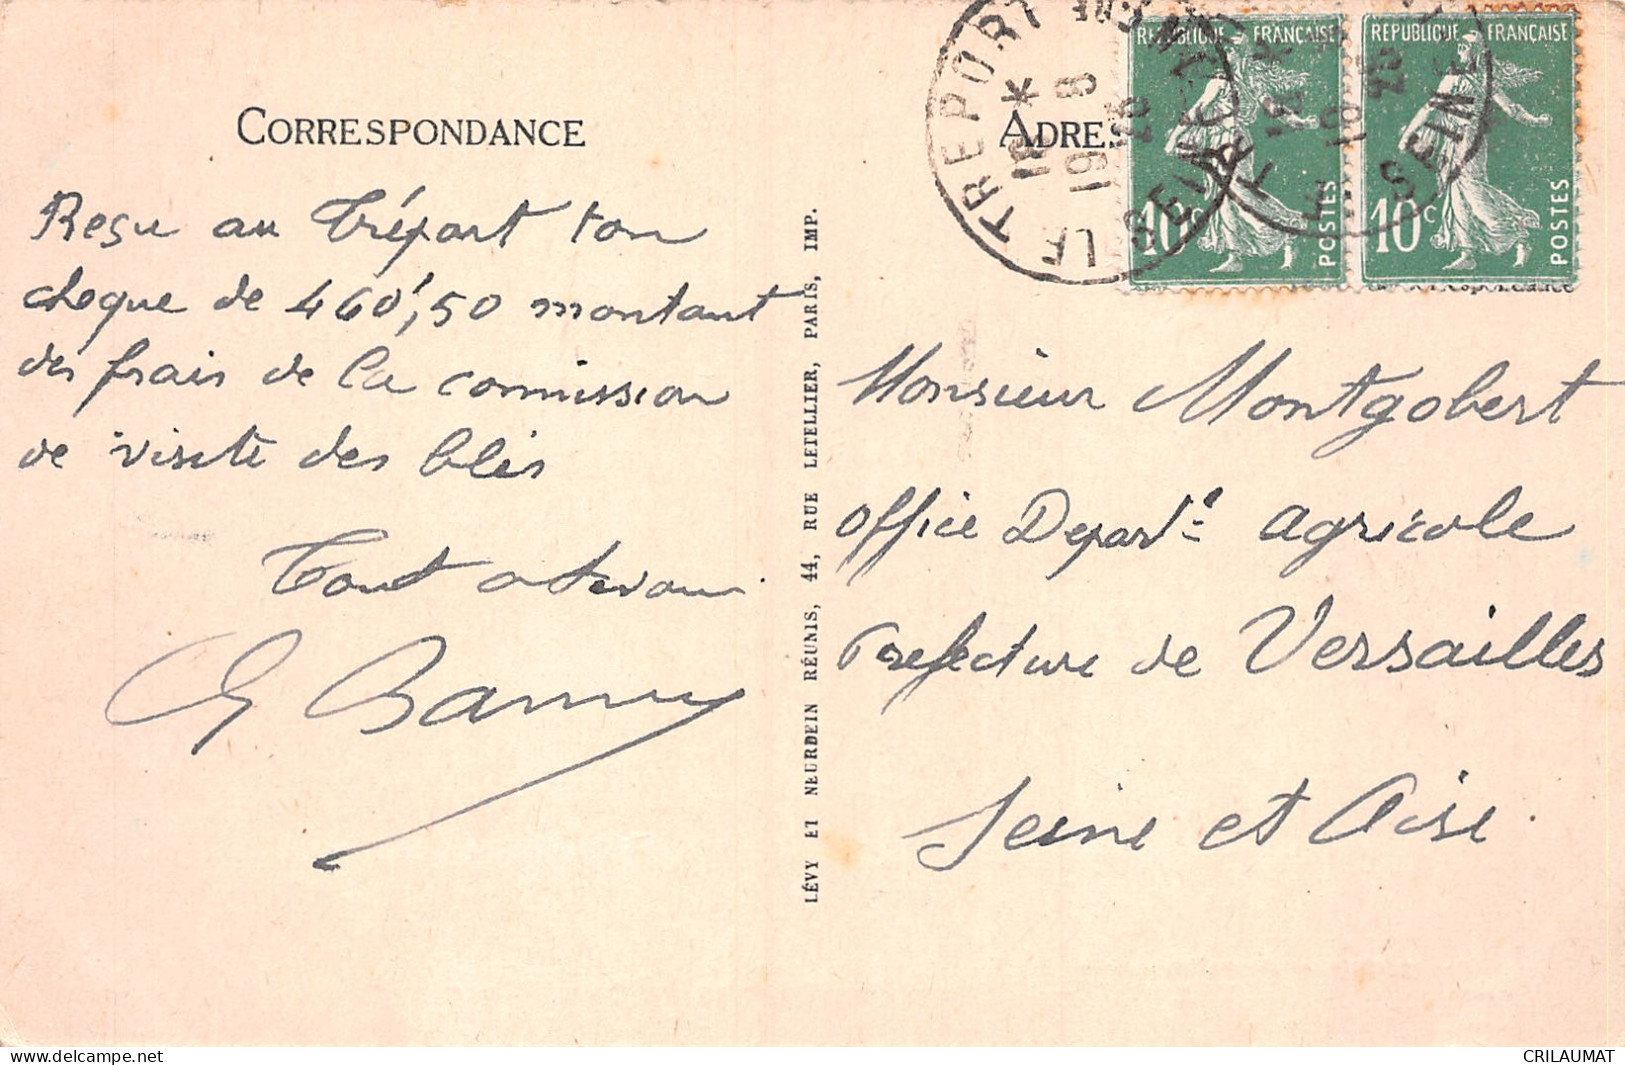 CORRESPONDANCE
Reçu au Tréport ton
cheque de 460f,50 montant
des frais de la commission
de visite des blés
Tout a
LÉVY ET NEURDEIN RÉUNIS, 44, RUE LETELLIER, PARIS, IMP.
ADRES
LE TREPORT
18 * 8
19 25
SEINE
REPUBLIQUE FRANÇAISE
10c
POSTES
REPUBLIQUE FRANÇAISE
10c
POSTES
SEINE
Monsieur Montgobert
Office Depart agricole
Prefecture de Versailles
Seine et Oise.
CRILAUMAT